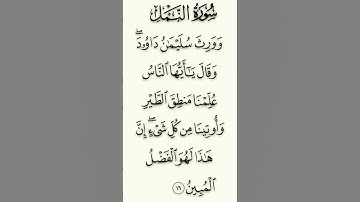 سُورَةُ النَّمْلِ
وَوَرِثَ سُلَيْمَٰنُ دَاوُۥدَۖ
وَقَالَ يَٰٓأَيُّهَا ٱلنَّاسُ
عُلِّمْنَا مَنطِقَ ٱلطَّيْرِ
وَأُوتِينَا مِن كُلِّ شَىْءٍۖ إِنَّ
هَٰذَا لَهُوَ ٱلْفَضْلُ
ٱلْمُبِينُ ١٦